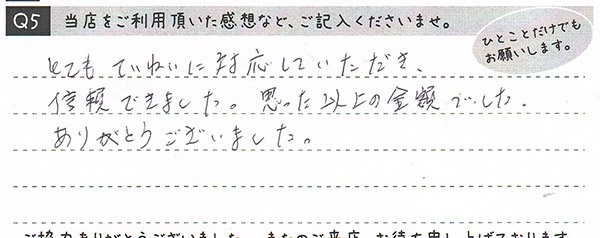 Q5 当店をご利用頂いた感想など、ご記入くださいませ。
ひとことだけでも
お願いします。
とてもていねいに対応していただき、
信頼できました。思った以上の金額でした。
ありがとうございました。
ご協力ありがとうございました。またのご来店、お待ち申し上げております